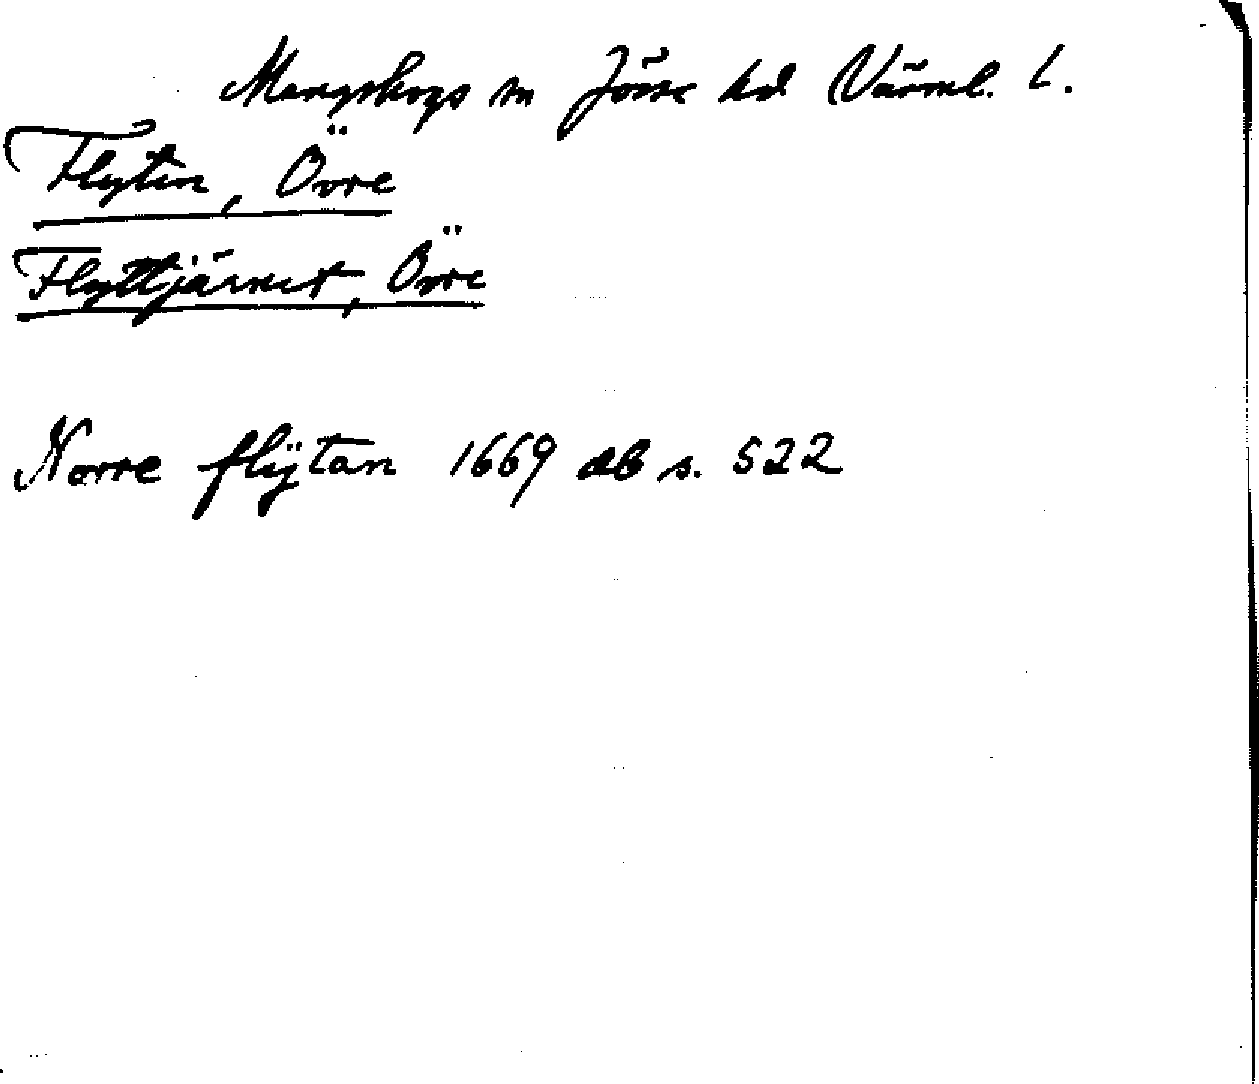 Mangskogs sn Jösse hd Värml. l.
Flyten, Övre
Flyttjärnet, Övre
Norre flÿtan 1669 db s. 522